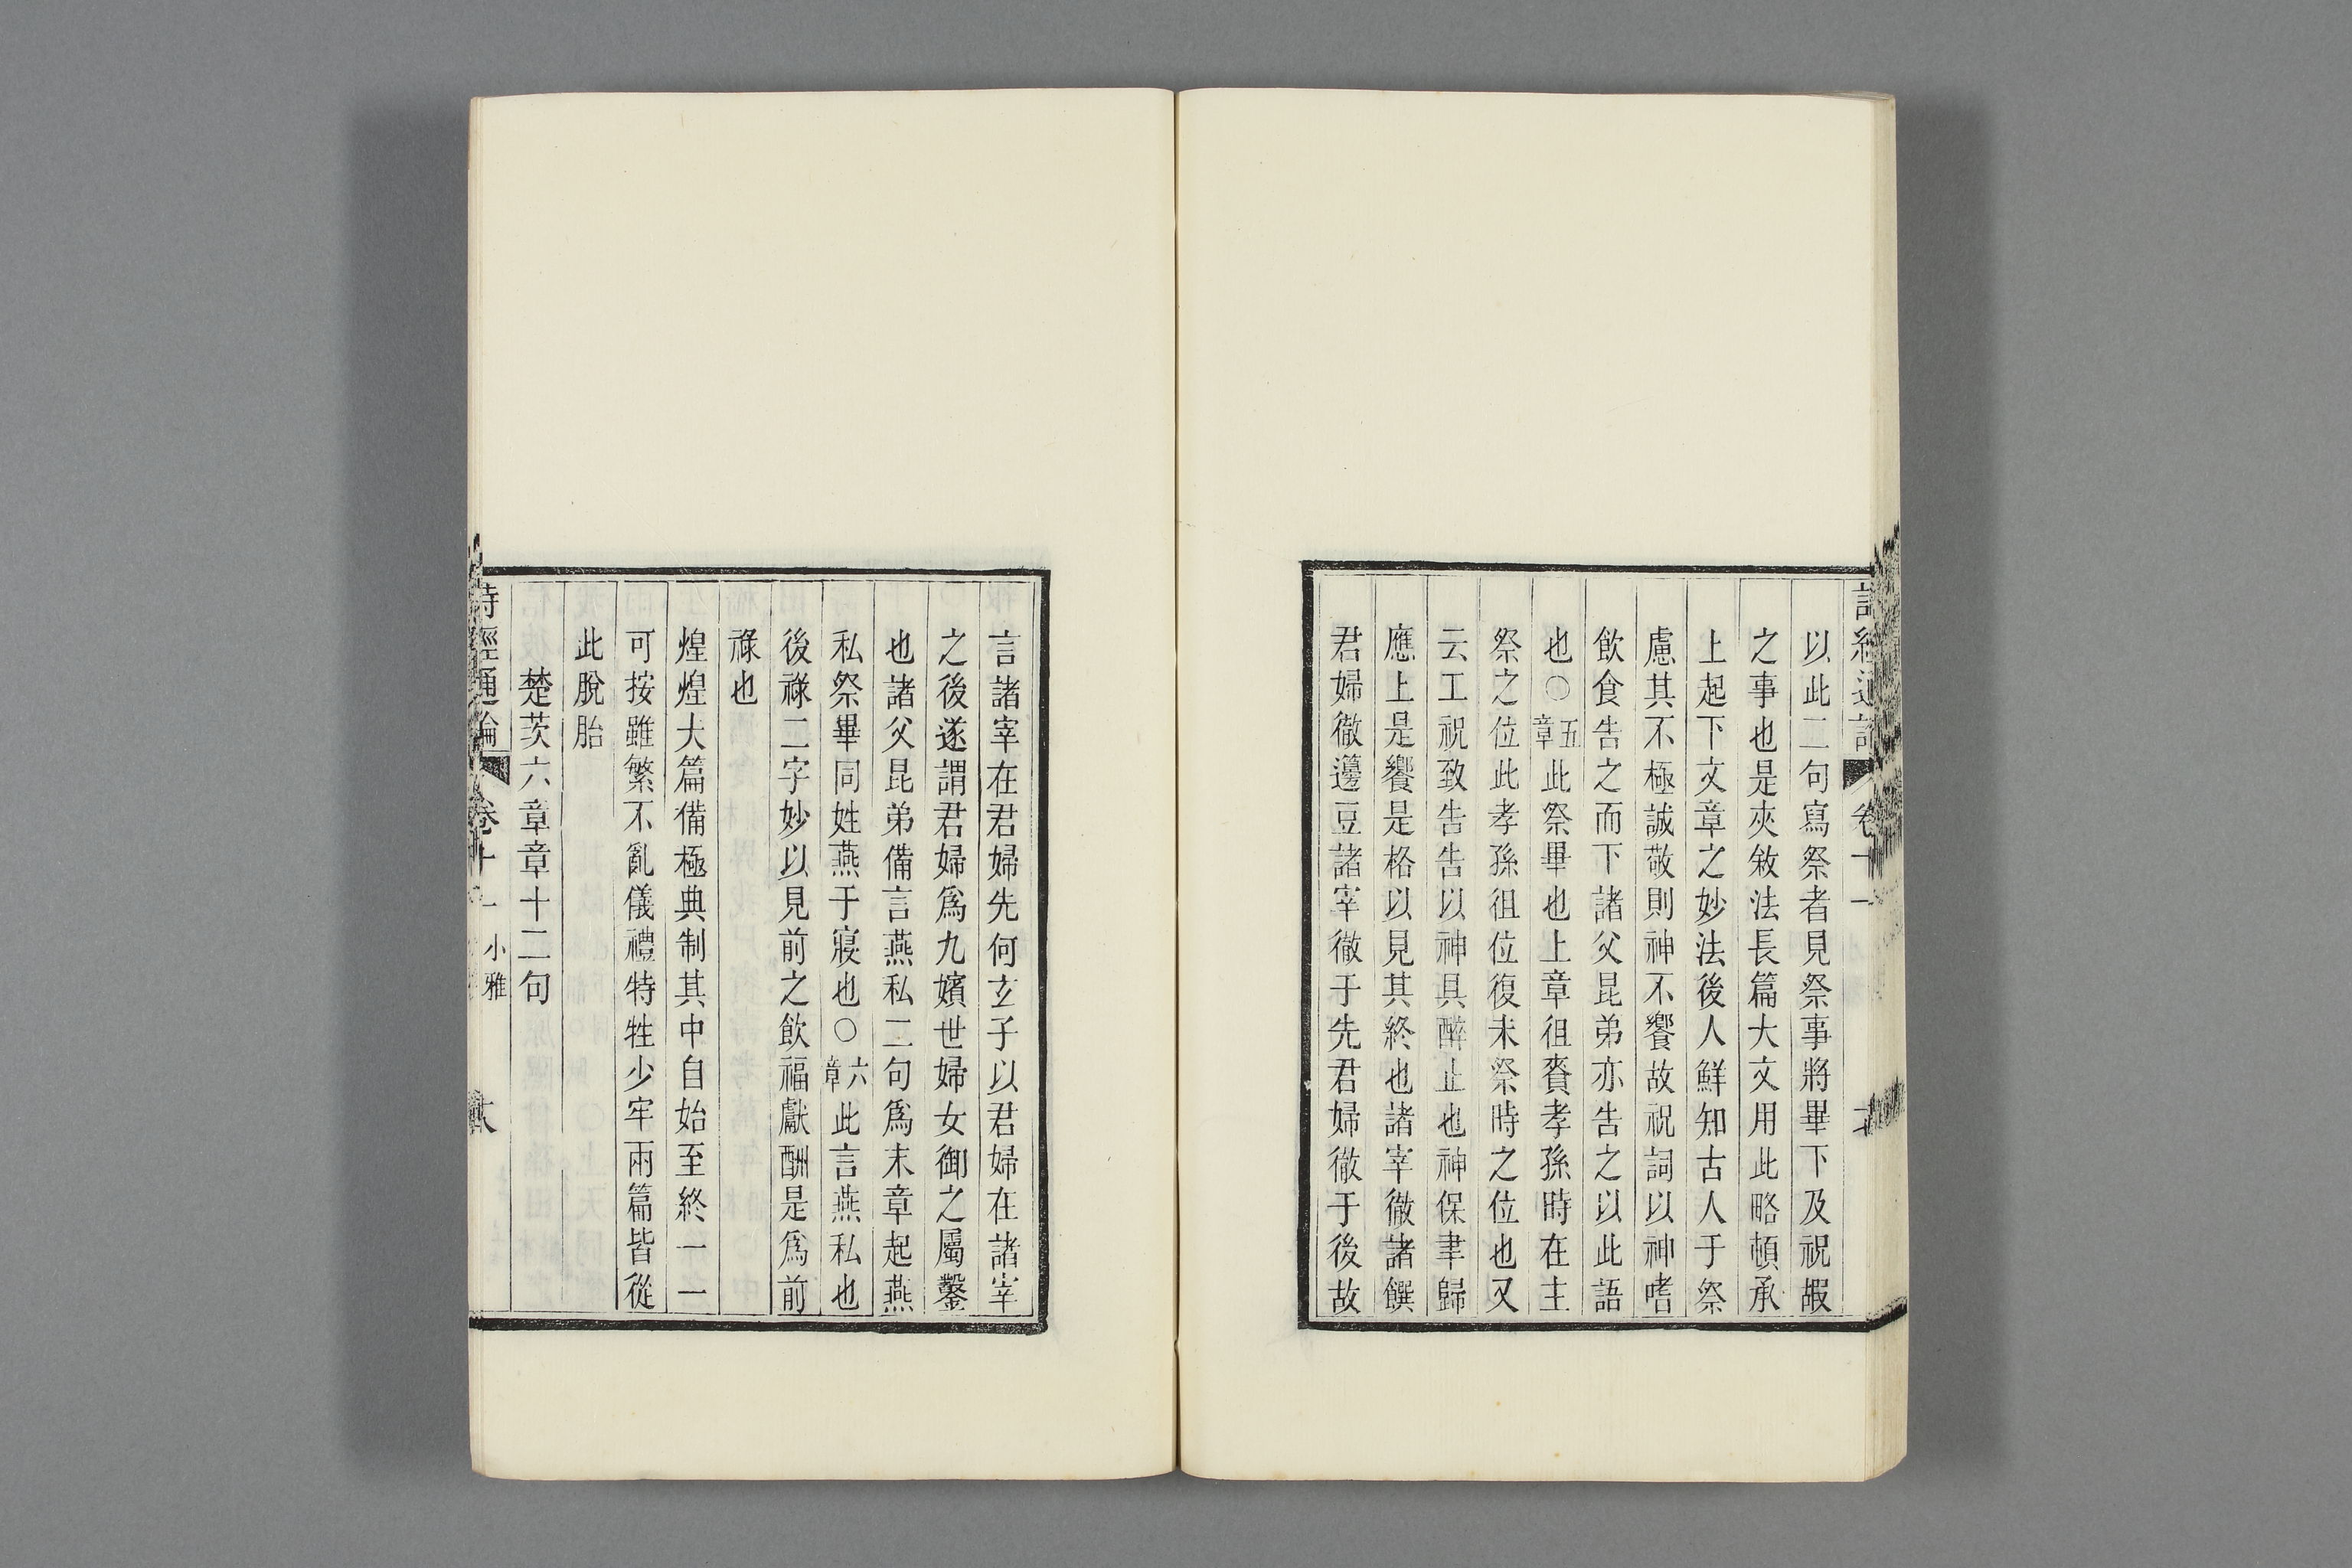 以此二句寫祭者見祭事將畢下及祝嘏
之事也是夾敘法長篇大文用此略頓承
上起下文章之妙法後人鮮知古人于祭
慮其不極誠敬則神不饗故祝詞以神嗜
飲食告之而下諸父昆弟亦告之以此語
也○五章此祭畢也上章徂賚孝孫時在主
祭之位此孝孫徂位復未祭時之位也又
云工祝致告告以神具醉止也神保聿歸
應上是饗是格以見其終也諸宰徹諸饌
君婦徹籩豆諸宰徹于先君婦徹于後故
言諸宰在君婦先何玄子以君婦在諸宰
之後遂謂君婦爲九嬪世婦女御之屬鑿
也諸父昆弟備言燕私二句爲末章起燕
私祭畢同姓燕于寢也○六章此言燕私也
後祿二字妙以見前之飲福獻酬是爲前
祿也
煌煌大篇備極典制其中自始至終一一
可按雖繁不亂儀禮特牲少牢兩篇皆從
此脫胎
楚茨六章章十二句
詩經通論 卷十一 小雅